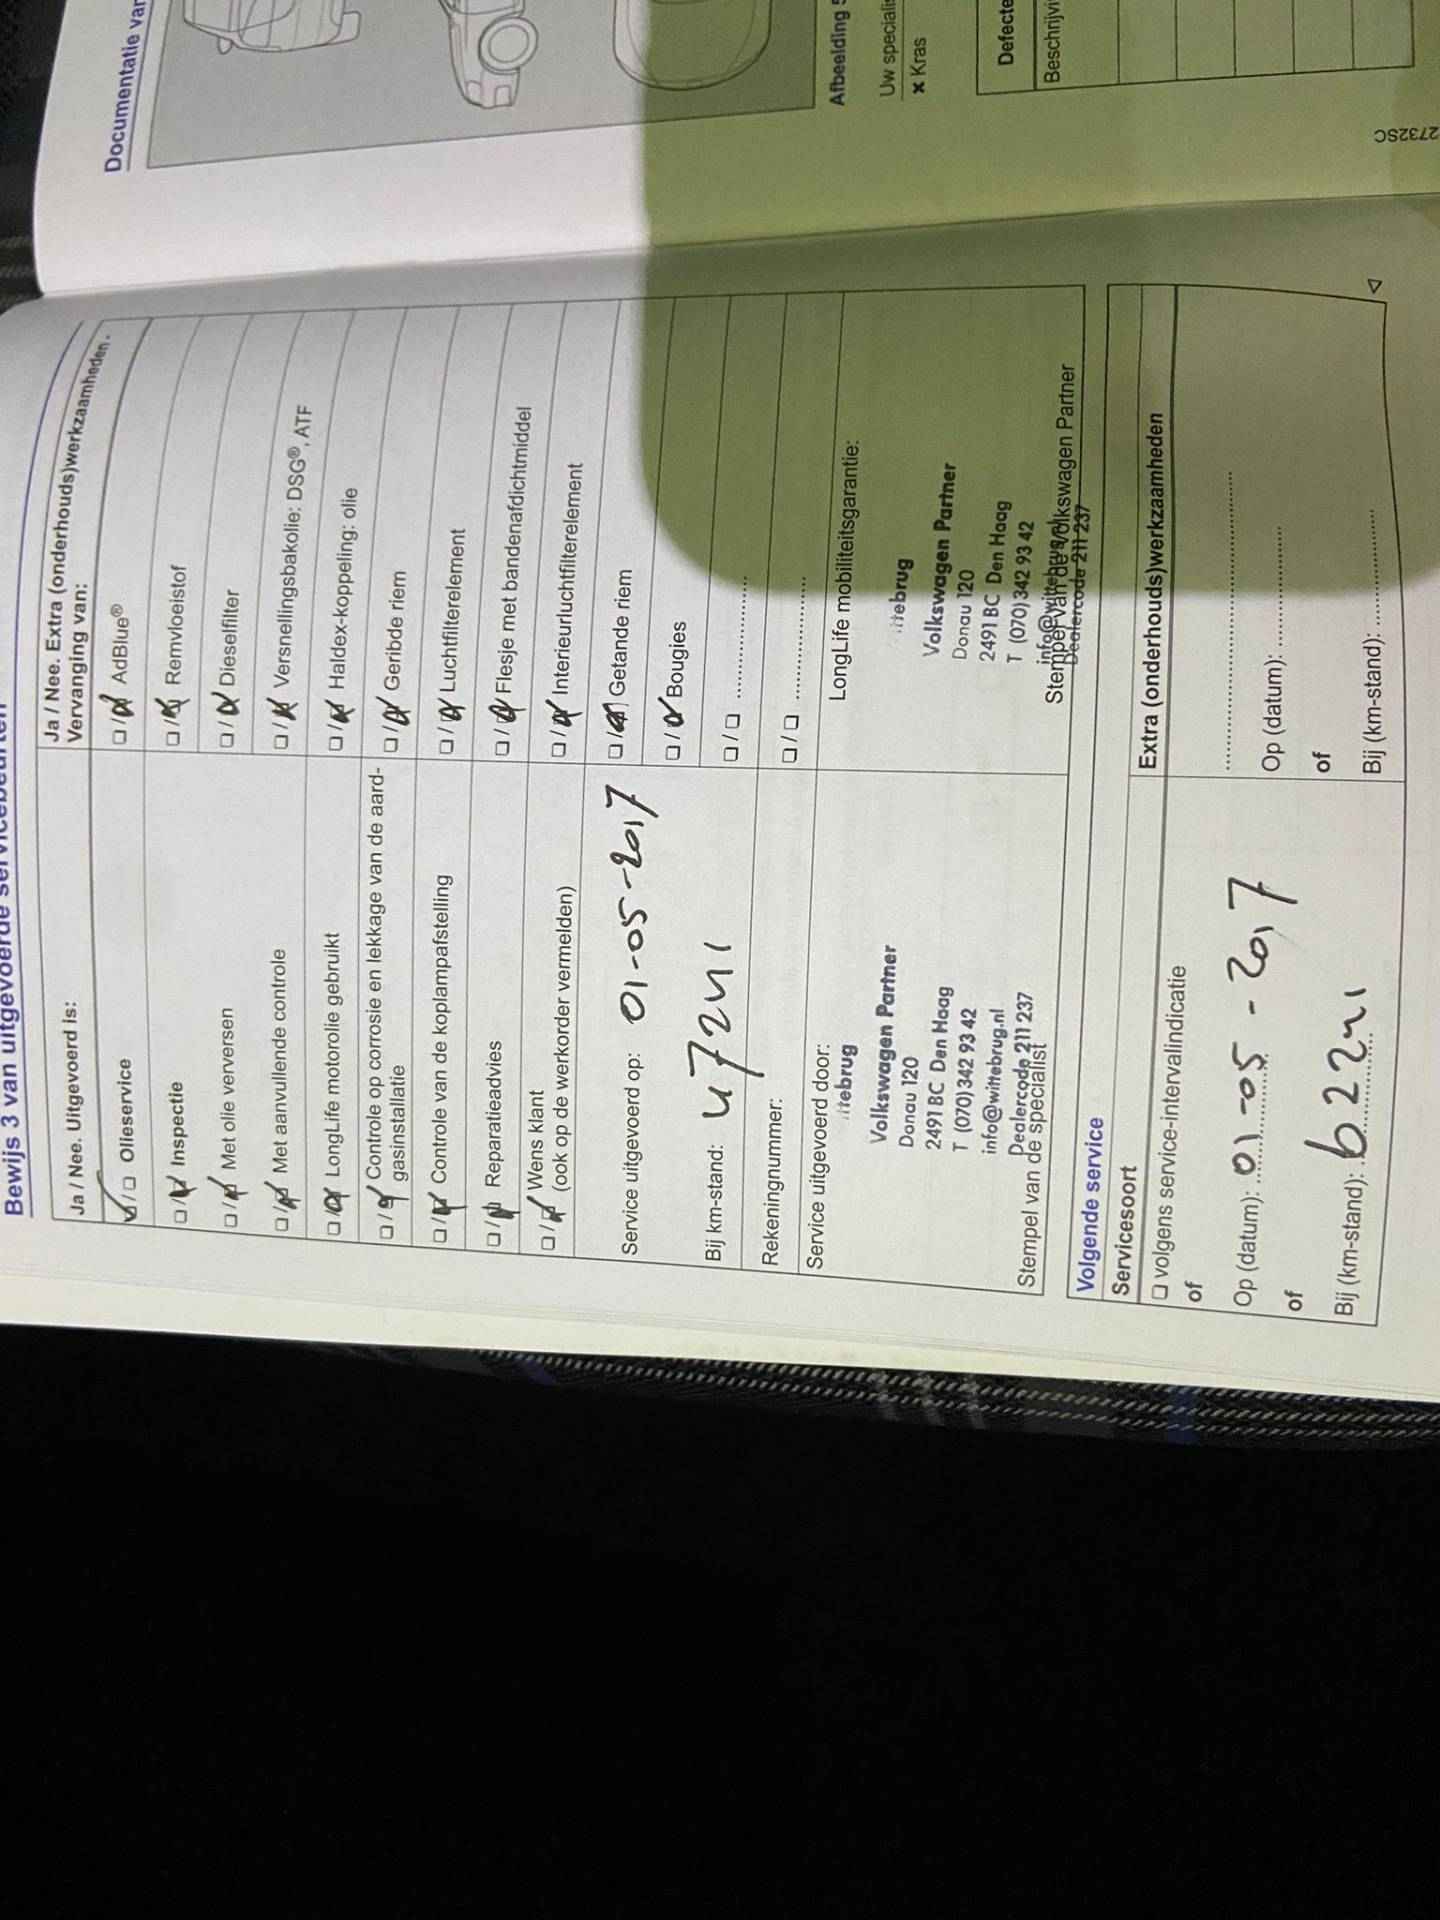 Bewijs 3 van uitgevoerde servicebeurten
Ja / Nee. Uitgevoerd is:
☑/☐ Olieservice
☐/☑ Inspectie
☐/☑ Met olie verversen
☐/☑ Met aanvullende controle
☐/☑ LongLife motorolie gebruikt
☐/☑ Controle op corrosie en lekkage van de aard-
gasinstallatie
☐/☑ Controle van de koplampafstelling
☐/☑ Reparatieadvies
☐/☑ Wens klant
(ook op de werkorder vermelden)
Service uitgevoerd op: 01-05-2017
Bij km-stand: 47241
Rekeningnummer:
Service uitgevoerd door:
ittebrug
Volkswagen Partner
Donau 120
2491 BC Den Haag
T (070) 342 93 42
info@wittebrug.nl
Dealercode 211 237
Stempel van de specialist
Ja / Nee. Extra (onderhouds)werkzaamheden.
Vervanging van:
☐/☑ AdBlue®
☐/☑ Remvloeistof
☐/☑ Dieselfilter
☐/☑ Versnellingsbakolie: DSG®, ATF
☐/☑ Haldex-koppeling: olie
☐/☑ Geribde riem
☐/☑ Luchtfilterelement
☐/☑ Flesje met bandenafdichtmiddel
☐/☑ Interieurluchtfilterelement
☐/☑ Getande riem
☐/☑ Bougies
☐/☐ ....................
☐/☐ ....................
LongLife mobiliteitsgarantie:
ittebrug
Volkswagen Partner
Donau 120
2491 BC Den Haag
T (070) 342 93 42
info@wittebrug.nl
Stempel van de Volkswagen Partner
Dealercode 211 237
Volgende service
Servicesoort
☐ volgens service-intervalindicatie
of
Op (datum): 01-05-2017
of
Bij (km-stand): 62241
Extra (onderhouds)werkzaamheden
....................
Op (datum): ....................
of
Bij (km-stand): ....................
Documentatie van
Afbeelding
Uw speciali
x Kras
Defecte
Beschrijvi
2732SC